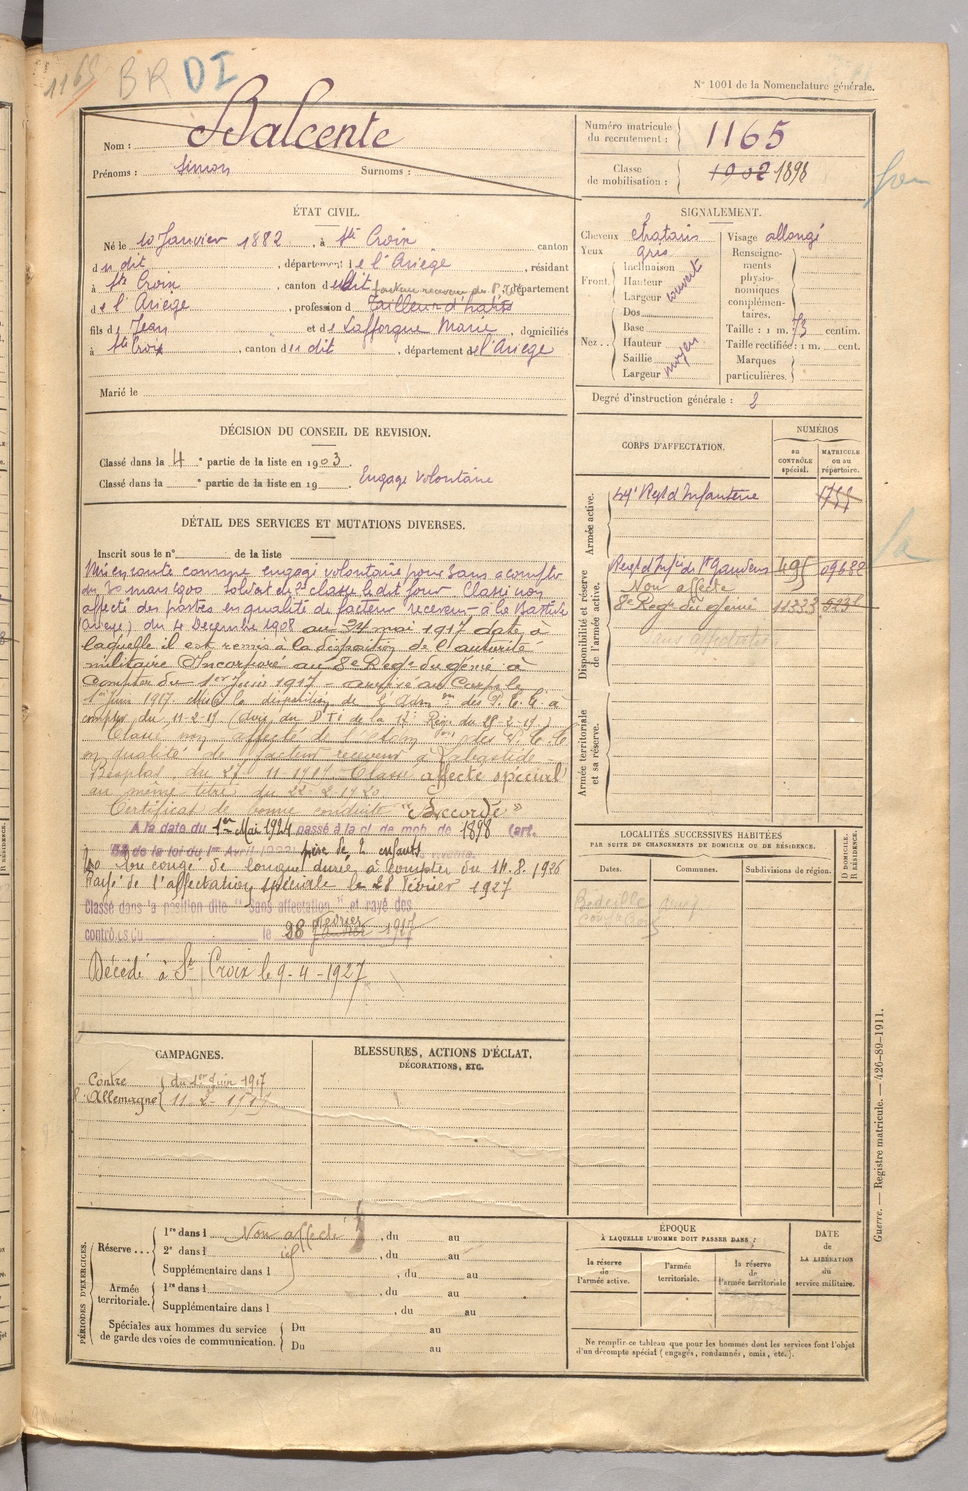 1165 BR DI
N° 1001 de la Nomenclature générale.
Nom : Balcente
Prénoms : Simon Surnoms :
Numéro matricule du recrutement : 1165
Classe de mobilisation : 1902 1898
ÉTAT CIVIL.
Né le 10 Janvier 1882, à Ste Croix canton
du dit, département de l'Ariège, résidant
à Ste Croix, canton du dit, département
facteur receveur des P.T.
de l'Ariège, profession d Tailleur d'habits
fils de Jean et de Lafforgue Marie, domiciliés
à Ste Croix, canton du dit, département de l'Ariège
Marié le
SIGNALEMENT.
Cheveux chatains
Yeux gris
Front. Inclinaison
Hauteur
Largeur couvert
Nez.. Dos
Base
Hauteur
Saillie
Largeur moyen
Visage allongé
Renseignements physionomiques complémentaires.
Taille : 1 m. 73 centim.
Taille rectifiée : 1 m. cent.
Marques particulières.
Degré d'instruction générale : 2
DÉCISION DU CONSEIL DE REVISION.
Classé dans la 4e partie de la liste en 1903.
Classé dans la e partie de la liste en 19 Engagé volontaire
DÉTAIL DES SERVICES ET MUTATIONS DIVERSES.
Inscrit sous le n° de la liste
Mis en route comme engagé volontaire pour 3 ans à compter
du 30 mars 1900 soldat de 2e classe le dit jour. Classé non
affecté des postes en qualité de facteur receveur à la Bastide
(Ariège) du 4 Decembre 1908 au 24 mai 1917 date à
laquelle il est remis à la disposition de l'autorité
militaire Incorporé au 8e Régt du génie à
compter du 1er Juin 1917 - arrivé au Corps le
1er Juin 1917. Mis à la disposition de l'Adm on des P.T.T. à
compter du 11-2-19
Classé non affecté de l'Adm on des P.T.T.
en qualité de facteur receveur à Labastide
Besplas, du 27-11-1919 Classé affecté spécial
au même titre du 22-2-1920
Certificat de bonne conduite "Accordé"
A la date du 1er Mai 1924 passé à la cl. de mob. de 1898 (art.
de la loi du 1er Avril 1923) père de 2 enfants
En congé de longue durée à compter du 14.8.1926
Rayé de l'affectation spéciale le 28 Février 1927
Classé dans la position dite "Sans affectation" et rayé des
contrôles du le 28 février 1927
Décédé à Ste Croix le 9-4-1927
CORPS D'AFFECTATION.
NUMÉROS
au CONTRÔLE spécial.
MATRICULE ou au répertoire.
Armée active.
Disponibilité et réserve de l'armée active.
Armée territoriale et sa réserve.
Régt d'Infie de St Gaudens 495 09682
Non affecté
8e Régt du génie 11333
Sans affectation
LOCALITÉS SUCCESSIVES HABITÉES
PAR SUITE DE CHANGEMENTS DE DOMICILE OU DE RÉSIDENCE.
Dates. Communes. Subdivisions de région.
D DOMICILE. R RÉSIDENCE.
CAMPAGNES.
Contre l'Allemagne du 1er Juin 1917
11-2-1919
BLESSURES, ACTIONS D'ÉCLAT,
DÉCORATIONS, ETC.
PÉRIODES D'EXERCICES.
Réserve... 1re dans l Non affecté, du au
2e dans l id, du au
Supplémentaire dans l, du au
Armée territoriale. 1re dans l, du au
Supplémentaire dans l, du au
Spéciales aux hommes du service de garde des voies de communication. Du au
Du au
ÉPOQUE
À LAQUELLE L'HOMME DOIT PASSER DANS :
la réserve de l'armée active.
l'armée territoriale.
la réserve de l'armée territoriale
DATE de LA LIBÉRATION du service militaire.
Ne remplir ce tableau que pour les hommes dont les services font l'objet
d'un décompte spécial (engagés, condamnés, omis, etc.).
Guerre. — Registre matricule. — 426-89-1911.